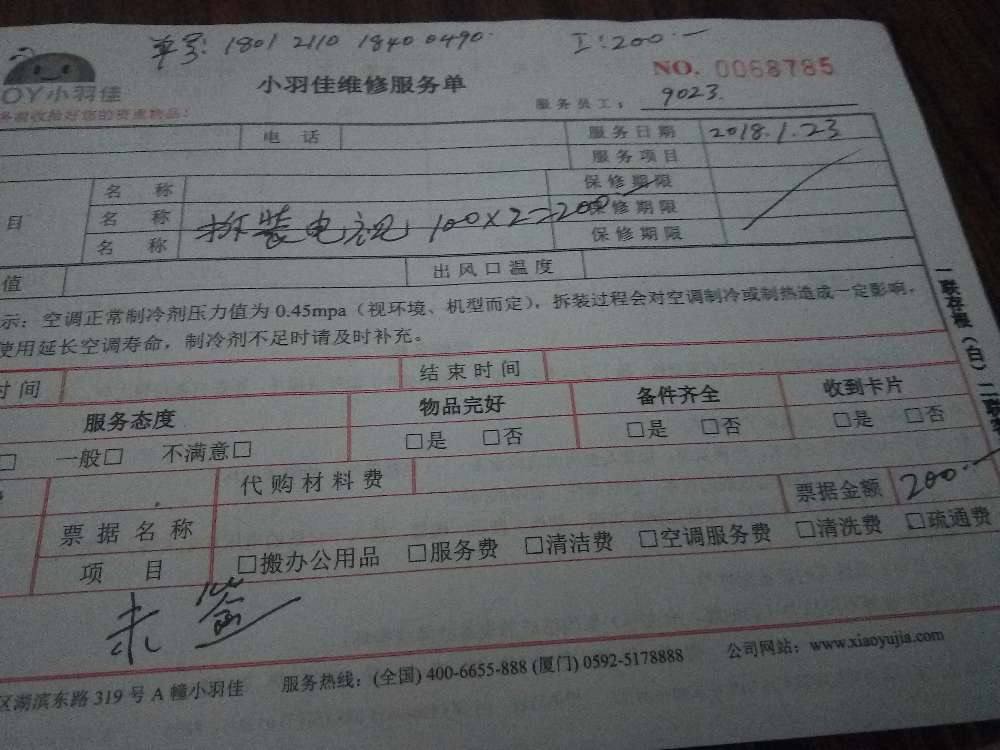 单号: 1801 2110 1840 0490. 工:200.一
OY小羽佳
小羽佳维修服务单
NO. 0068785
务前收拾好您的贵重物品!
服务员工: 9023
电 话
服务日期 2018.1.23
服务项目
目
名 称 保修期限
名 称 拆装电视 100×2=200. 保修期限
名 称 保修期限
值 出风口温度
示:空调正常制冷剂压力值为 0.45mpa(视环境、机型而定),拆装过程会对空调制冷或制热造成一定影响,
使用延长空调寿命,制冷剂不足时请及时补充。
时间 结束时间
服务态度 物品完好 备件齐全 收到卡片
□ 一般□ 不满意□ □是 □否 □是 □否 □是 □否
代购材料费
票据名称 票据金额 200.一
项 目 □搬办公用品 □服务费 □清洁费 □空调服务费 □清洗费 □疏通费
未签
区湖滨东路 319 号 A 幢小羽佳 服务热线:(全国) 400-6655-888 (厦门) 0592-5178888 公司网站:www.xiaoyujia.com
一联存根(白)二联